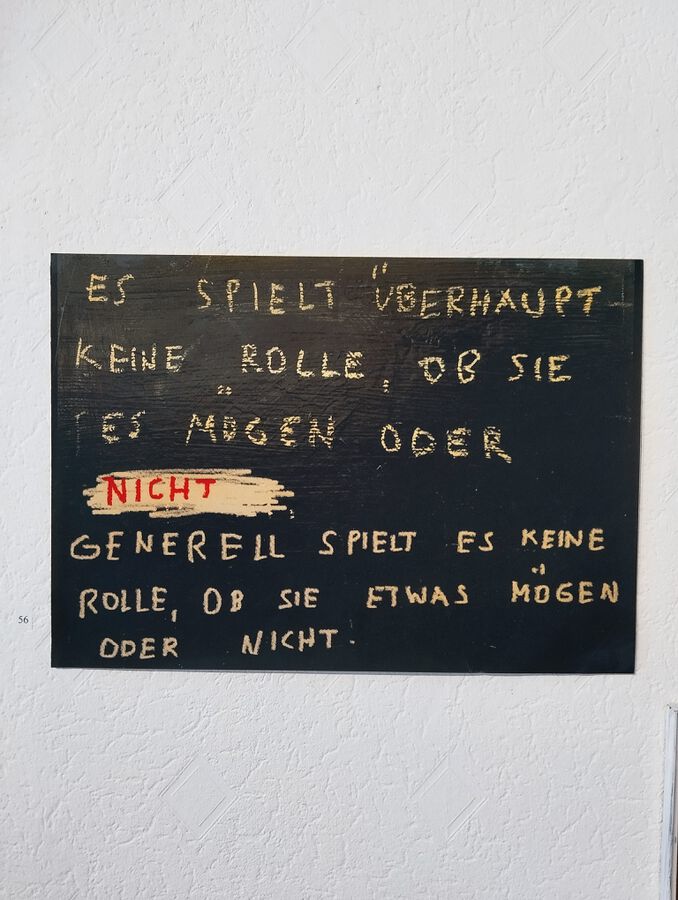 ES SPIELT ÜBERHAUPT
KEINE ROLLE, OB SIE
ES MÖGEN ODER
NICHT.
GENERELL SPIELT ES KEINE
ROLLE, OB SIE ETWAS MÖGEN
ODER NICHT.
56